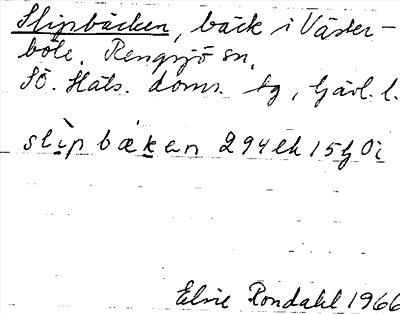 Slipbäcken, bäck i Väster-
böle. Rengsjö sn,
Sö. Häls. doms. tg, Gävl. l.
slipbæken 294 ek 15 G Oi
Elvie Rondahl 1966